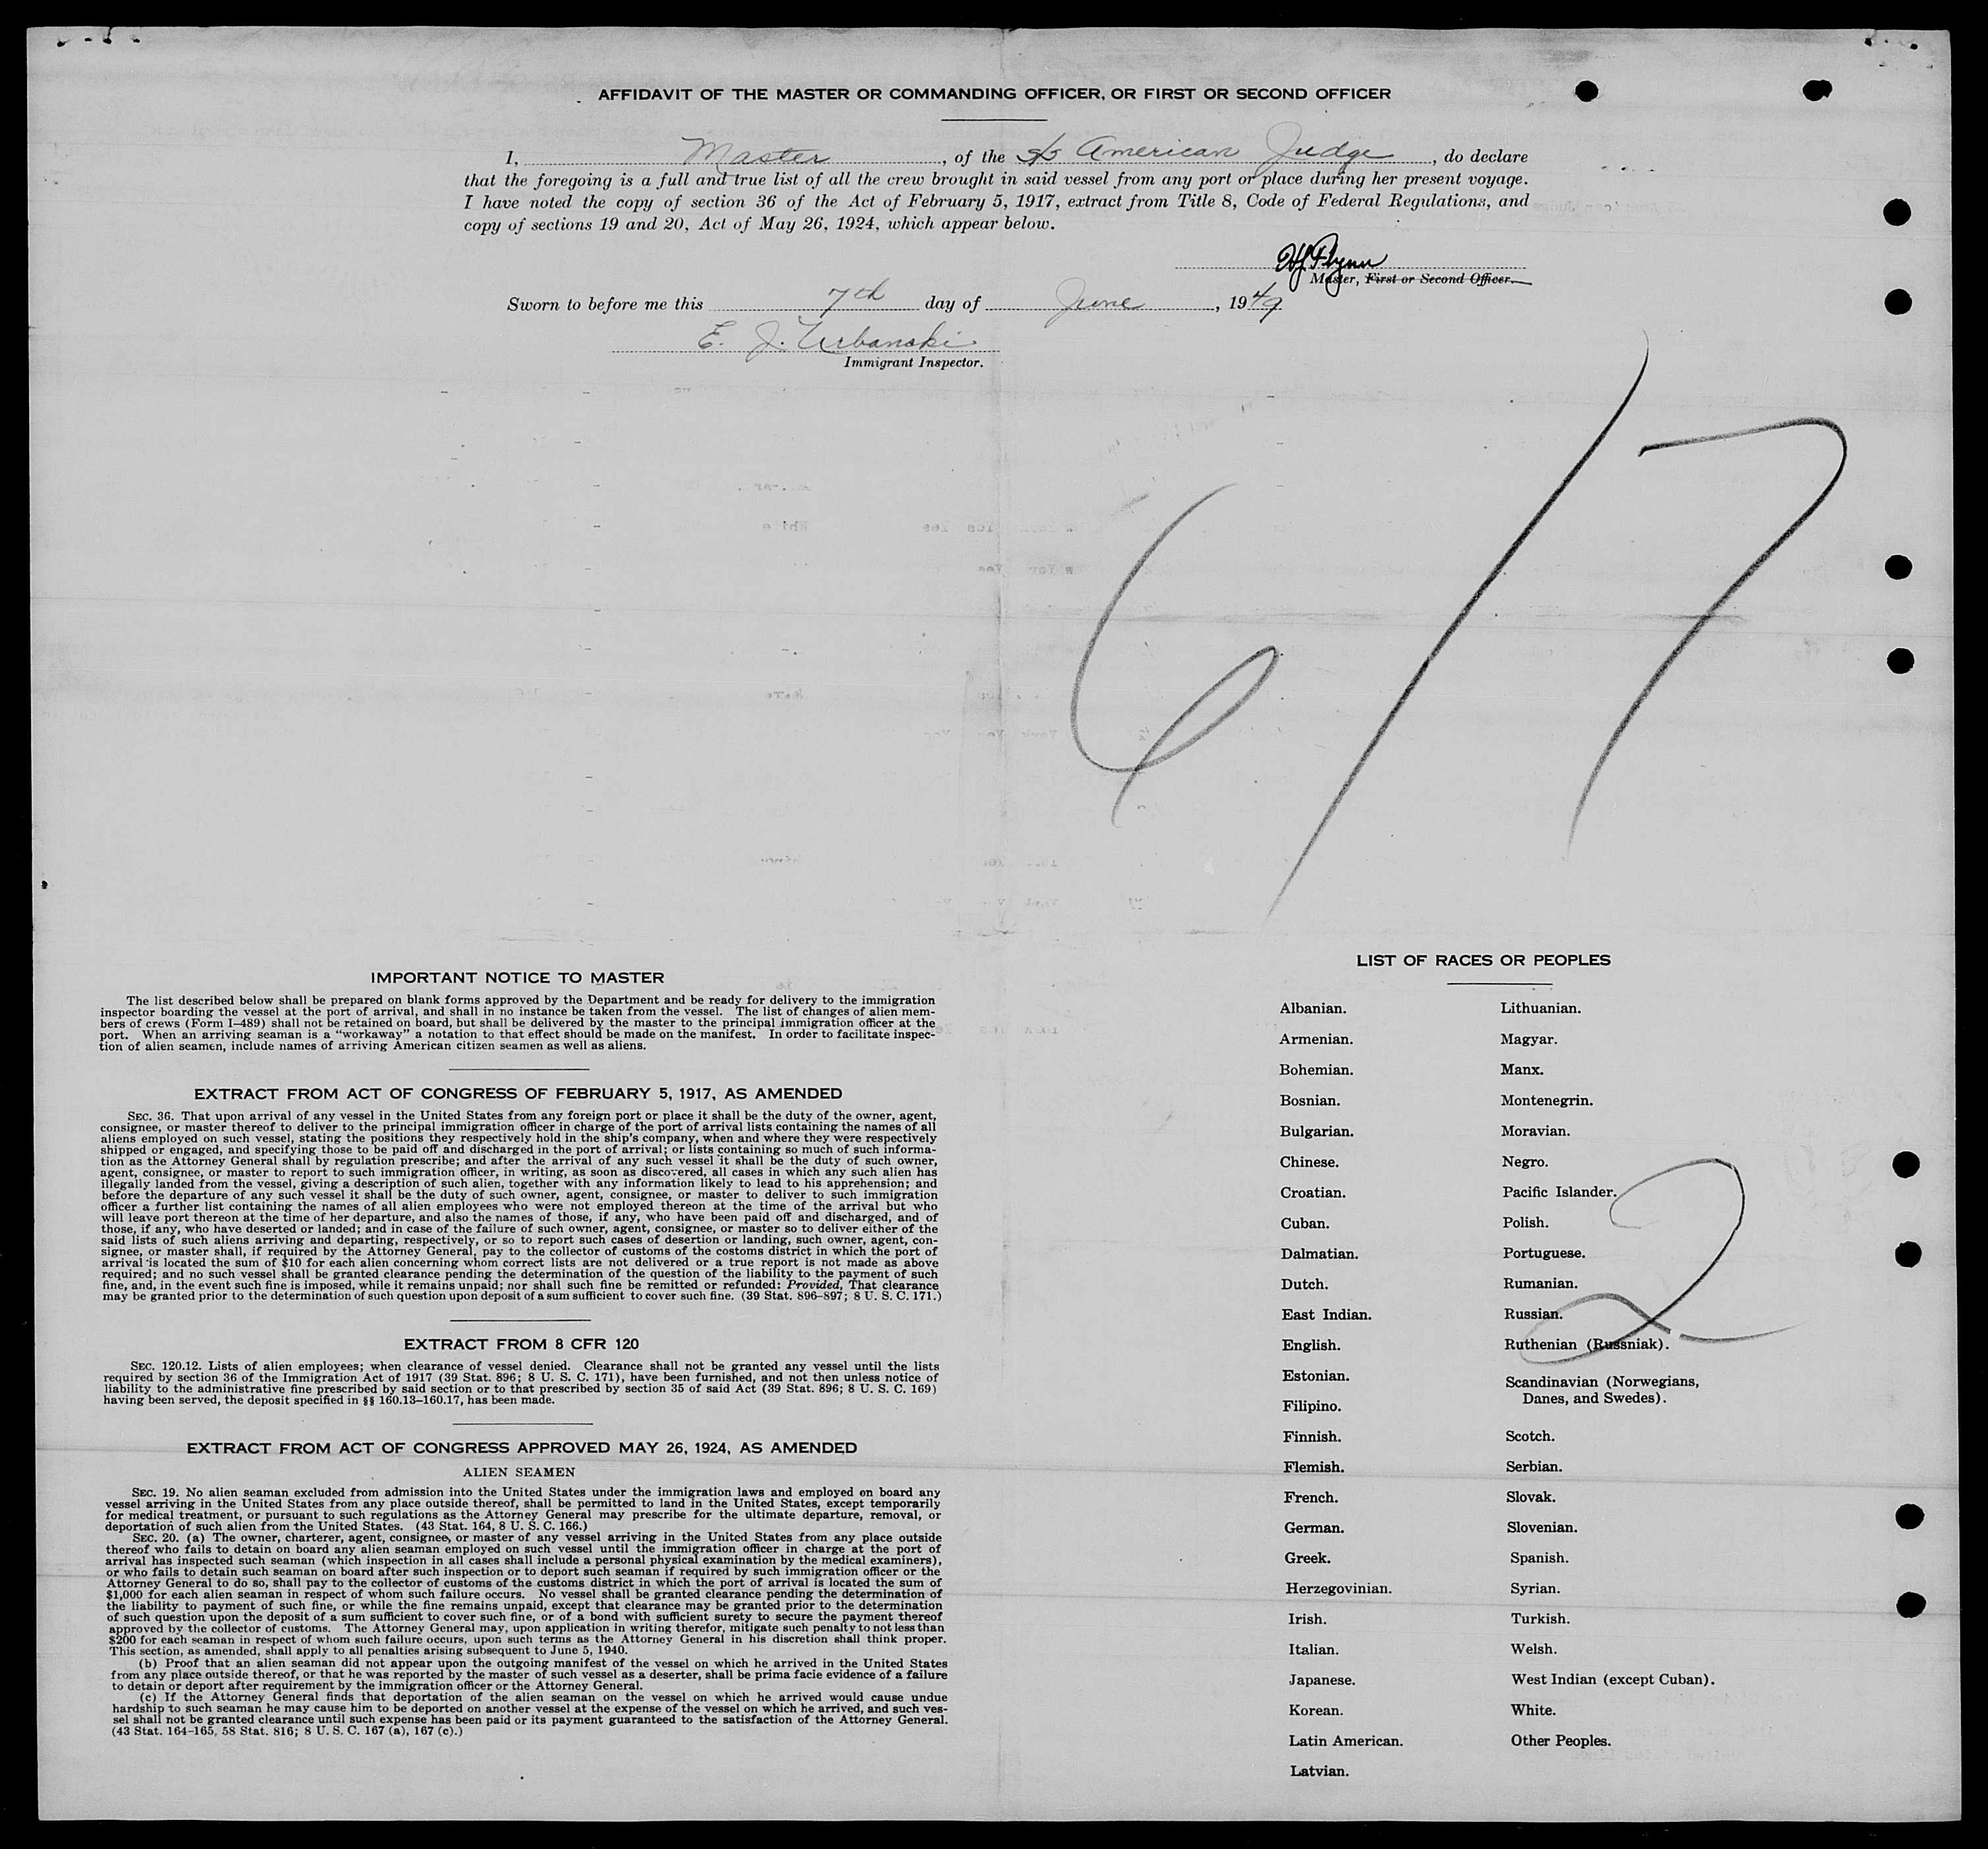 AFFIDAVIT OF THE MASTER OR COMMANDING OFFICER, OR FIRST OR SECOND OFFICER
I, Master, of the S/S American Judge, do declare
that the foregoing is a full and true list of all the crew brought in said vessel from any port or place during her present voyage.
I have noted the copy of section 36 of the Act of February 5, 1917, extract from Title 8, Code of Federal Regulations, and
copy of sections 19 and 20, Act of May 26, 1924, which appear below.
HJ Flynn
Master, First or Second Officer.
Sworn to before me this 7th day of June, 1949
E. J. Urbanski
Immigrant Inspector.
6/7
IMPORTANT NOTICE TO MASTER
The list described below shall be prepared on blank forms approved by the Department and be ready for delivery to the immigration
inspector boarding the vessel at the port of arrival, and shall in no instance be taken from the vessel. The list of changes of alien mem-
bers of crews (Form I-489) shall not be retained on board, but shall be delivered by the master to the principal immigration officer at the
port. When an arriving seaman is a "workaway" a notation to that effect should be made on the manifest. In order to facilitate inspec-
tion of alien seamen, include names of arriving American citizen seamen as well as aliens.
EXTRACT FROM ACT OF CONGRESS OF FEBRUARY 5, 1917, AS AMENDED
SEC. 36. That upon arrival of any vessel in the United States from any foreign port or place it shall be the duty of the owner, agent,
consignee, or master thereof to deliver to the principal immigration officer in charge of the port of arrival lists containing the names of all
aliens employed on such vessel, stating the positions they respectively hold in the ship's company, when and where they were respectively
shipped or engaged, and specifying those to be paid off and discharged in the port of arrival; or lists containing so much of such informa-
tion as the Attorney General shall by regulation prescribe; and after the arrival of any such vessel it shall be the duty of such owner,
agent, consignee, or master to report to such immigration officer, in writing, as soon as discovered, all cases in which any such alien has
illegally landed from the vessel, giving a description of such alien, together with any information likely to lead to his apprehension; and
before the departure of any such vessel it shall be the duty of such owner, agent, consignee, or master to deliver to such immigration
officer a further list containing the names of all alien employees who were not employed thereon at the time of the arrival but who
will leave port thereon at the time of her departure, and also the names of those, if any, who have been paid off and discharged, and of
those, if any, who have deserted or landed; and in case of the failure of such owner, agent, consignee, or master so to deliver either of the
said lists of such aliens arriving and departing, respectively, or so to report such cases of desertion or landing, such owner, agent, con-
signee, or master shall, if required by the Attorney General, pay to the collector of customs of the costoms district in which the port of
arrival is located the sum of $10 for each alien concerning whom correct lists are not delivered or a true report is not made as above
required; and no such vessel shall be granted clearance pending the determination of the question of the liability to the payment of such
fine, and, in the event such fine is imposed, while it remains unpaid; nor shall such fine be remitted or refunded: Provided, That clearance
may be granted prior to the determination of such question upon deposit of a sum sufficient to cover such fine. (39 Stat. 896-897; 8 U. S. C. 171.)
EXTRACT FROM 8 CFR 120
SEC. 120.12. Lists of alien employees; when clearance of vessel denied. Clearance shall not be granted any vessel until the lists
required by section 36 of the Immigration Act of 1917 (39 Stat. 896; 8 U. S. C. 171), have been furnished, and not then unless notice of
liability to the administrative fine prescribed by said section or to that prescribed by section 35 of said Act (39 Stat. 896; 8 U. S. C. 169)
having been served, the deposit specified in §§ 160.13-160.17, has been made.
EXTRACT FROM ACT OF CONGRESS APPROVED MAY 26, 1924, AS AMENDED
ALIEN SEAMEN
SEC. 19. No alien seaman excluded from admission into the United States under the immigration laws and employed on board any
vessel arriving in the United States from any place outside thereof, shall be permitted to land in the United States, except temporarily
for medical treatment, or pursuant to such regulations as the Attorney General may prescribe for the ultimate departure, removal, or
deportation of such alien from the United States. (43 Stat. 164, 8 U. S. C. 166.)
SEC. 20. (a) The owner, charterer, agent, consignee, or master of any vessel arriving in the United States from any place outside
thereof who fails to detain on board any alien seaman employed on such vessel until the immigration officer in charge at the port of
arrival has inspected such seaman (which inspection in all cases shall include a personal physical examination by the medical examiners),
or who fails to detain such seaman on board after such inspection or to deport such seaman if required by such immigration officer or the
Attorney General to do so, shall pay to the collector of customs of the customs district in which the port of arrival is located the sum of
$1,000 for each alien seaman in respect of whom such failure occurs. No vessel shall be granted clearance pending the determination of
the liability to the payment of such fine, or while the fine remains unpaid, except that clearance may be granted prior to the determination
of such question upon the deposit of a sum sufficient to cover such fine, or of a bond with sufficient surety to secure the payment thereof
approved by the collector of customs. The Attorney General may, upon application in writing therefor, mitigate such penalty to not less than
$200 for each seaman in respect of whom such failure occurs, upon such terms as the Attorney General in his discretion shall think proper.
This section, as amended, shall apply to all penalties arising subsequent to June 5, 1940.
(b) Proof that an alien seaman did not appear upon the outgoing manifest of the vessel on which he arrived in the United States
from any place outside thereof, or that he was reported by the master of such vessel as a deserter, shall be prima facie evidence of a failure
to detain or deport after requirement by the immigration officer or the Attorney General.
(c) If the Attorney General finds that deportation of the alien seaman on the vessel on which he arrived would cause undue
hardship to such seaman he may cause him to be deported on another vessel at the expense of the vessel on which he arrived, and such ves-
sel shall not be granted clearance until such expense has been paid or its payment guaranteed to the satisfaction of the Attorney General.
(43 Stat. 164-165, 58 Stat. 816; 8 U. S. C. 167 (a), 167 (c).)
LIST OF RACES OR PEOPLES
Albanian.
Armenian.
Bohemian.
Bosnian.
Bulgarian.
Chinese.
Croatian.
Cuban.
Dalmatian.
Dutch.
East Indian.
English.
Estonian.
Filipino.
Finnish.
Flemish.
French.
German.
Greek.
Herzegovinian.
Irish.
Italian.
Japanese.
Korean.
Latin American.
Latvian.
Lithuanian.
Magyar.
Manx.
Montenegrin.
Moravian.
Negro.
Pacific Islander.
Polish.
Portuguese.
Rumanian.
Russian.
Ruthenian (Russniak).
Scandinavian (Norwegians,
Danes, and Swedes).
Scotch.
Serbian.
Slovak.
Slovenian.
Spanish.
Syrian.
Turkish.
Welsh.
West Indian (except Cuban).
White.
Other Peoples.
2